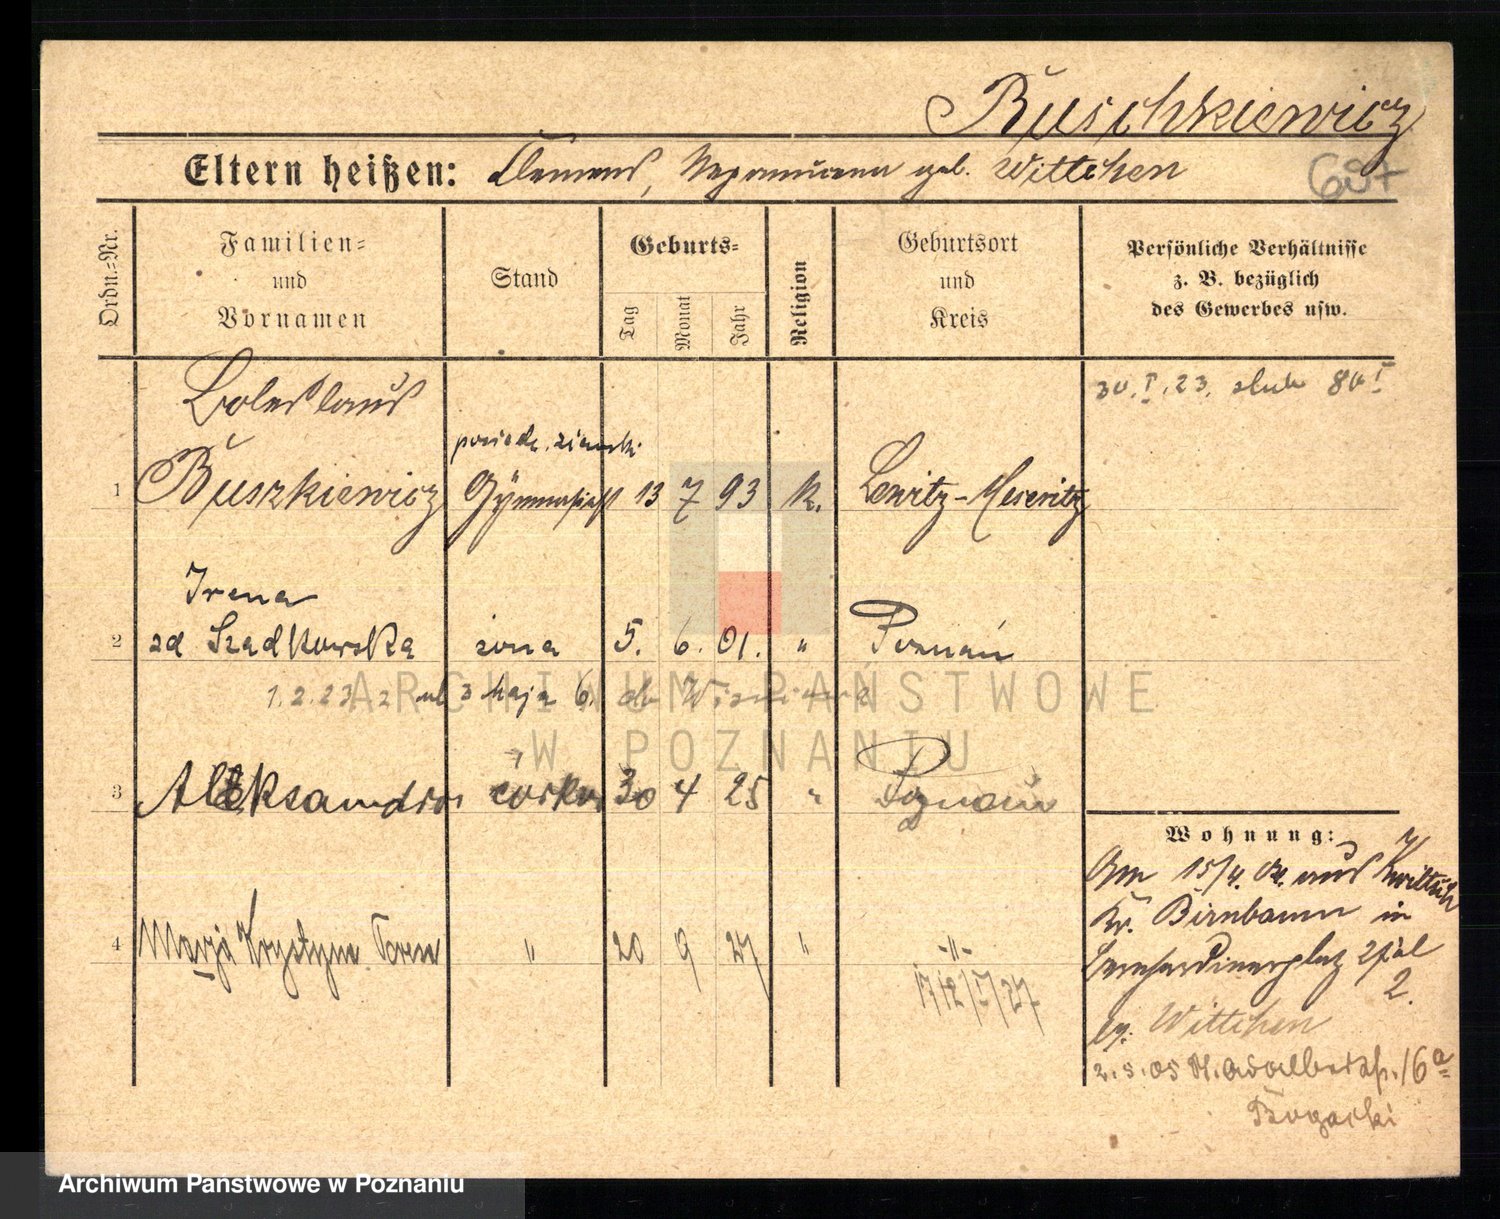 Buschkiewicz
Eltern heißen: Clemens, Nepomucena geb. Wittchen
Ordn.=Nr.
Familien=
und
Vornamen
Stand
Geburts=
Tag
Monat
Jahr
Religion
Geburtsort
und
Kreis
Persönliche Verhältnisse
z. B. bezüglich
des Gewerbes usw.
30.I.23. ślub 80 I
Boleslaus
posiedz. ziemski
1 Buszkiewicz Gymnasiast 13 7 93 k. Lewitz-Meseritz
Irena
2 zd Szadkowska żona 5. 6. 01. " Poznań
1.2.23. 3 Maja 6.
3 Aleksandra córka 30 4 25 " Poznań
4 Marja Krystyna " 20 9 27 " -"-
Wohnung:
Am 15/4. 04. aus Kwiltsch
Kr. Birnbaum in
Bernhardinerplatz
2.
Wittchen
2.5.05 St. Adalbertstr. 16a
Bogacki
ARCHIWUM PAŃSTWOWE
W POZNANIU
Archiwum Państwowe w Poznaniu